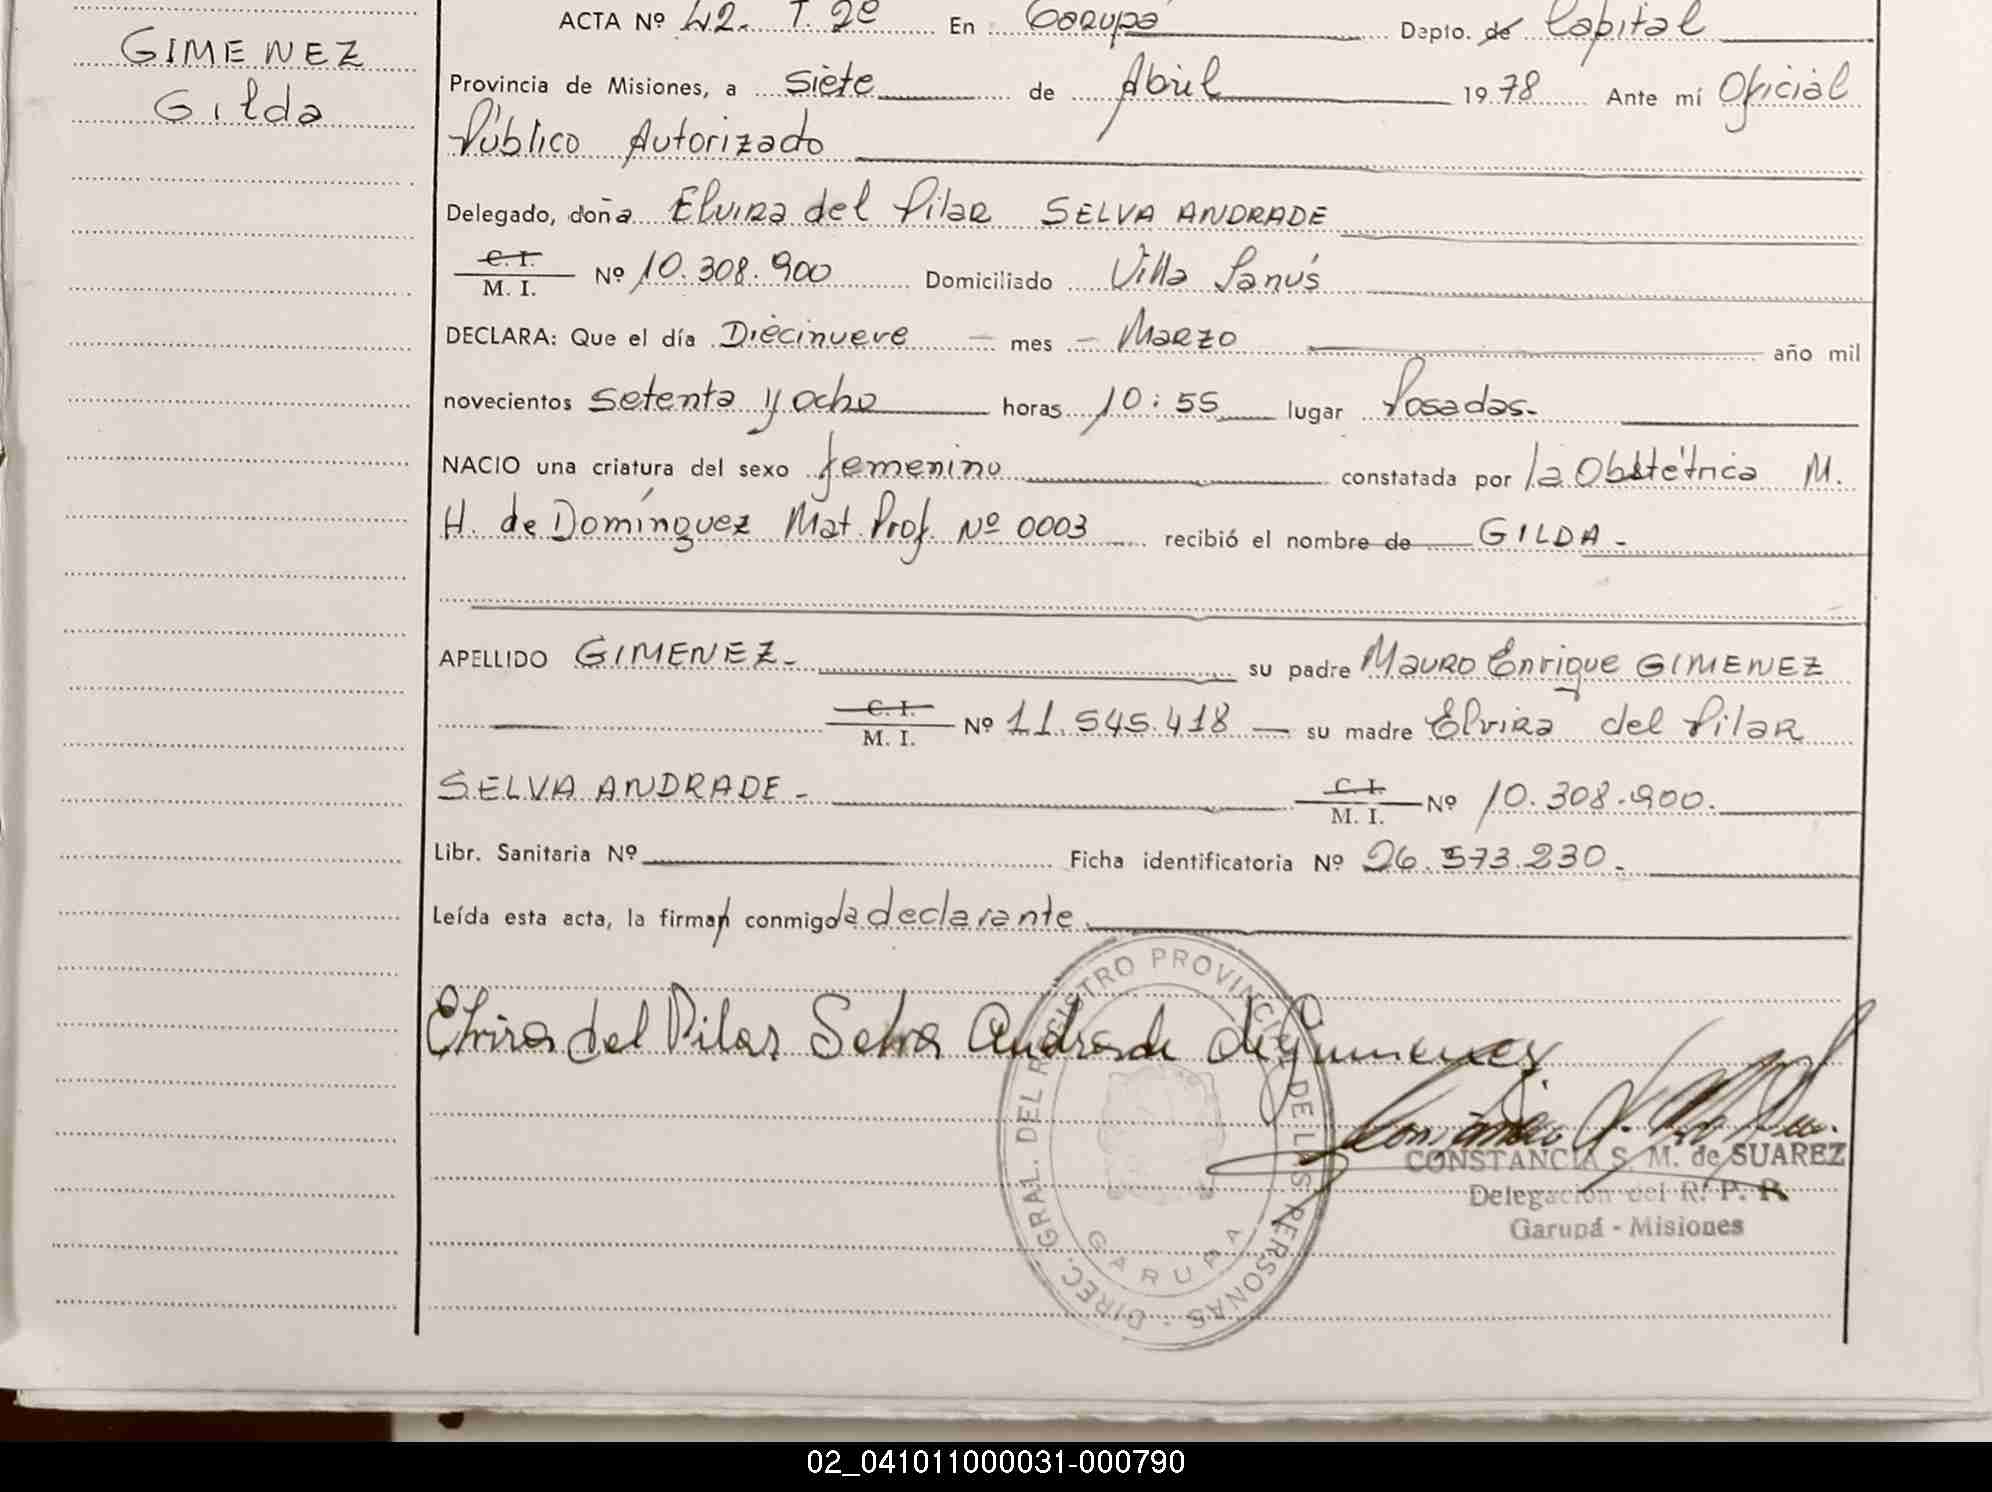 GIMENEZ
Gilda
ACTA Nº 42. T. 2º En Garupá Depto. de Capital
Provincia de Misiones, a siete de Abril 1978 Ante mí Oficial
Público Autorizado
Delegado, doña Elvira del Pilar SELVA ANDRADE
C. I.
M. I. Nº 10.308.900 Domiciliado Villa Lanús
DECLARA: Que el día Diecinueve mes Marzo año mil
novecientos setenta y ocho horas 10:55 lugar Posadas.
NACIO una criatura del sexo femenino constatada por la Obstétrica M.
H. de Domínguez Mat. Prof. Nº 0003 recibió el nombre de GILDA.
APELLIDO GIMENEZ. su padre Mauro Enrique GIMENEZ
C. I.
M. I. Nº 11.545.418 su madre Elvira del Pilar
SELVA ANDRADE. C. I.
M. I. Nº 10.308.900.
Libr. Sanitaria Nº Ficha identificatoria Nº 26.573.230.
Leída esta acta, la firman conmigo la declarante
Elvira del Pilar Selva Andrade de Gimenez
DIREC. GRAL. DEL REGISTRO PROVINCIAL DE LAS PERSONAS
GARUPA
CONSTANCIA S. M. de SUAREZ
Delegación del R. P. P.
Garupá - Misiones
02_041011000031-000790